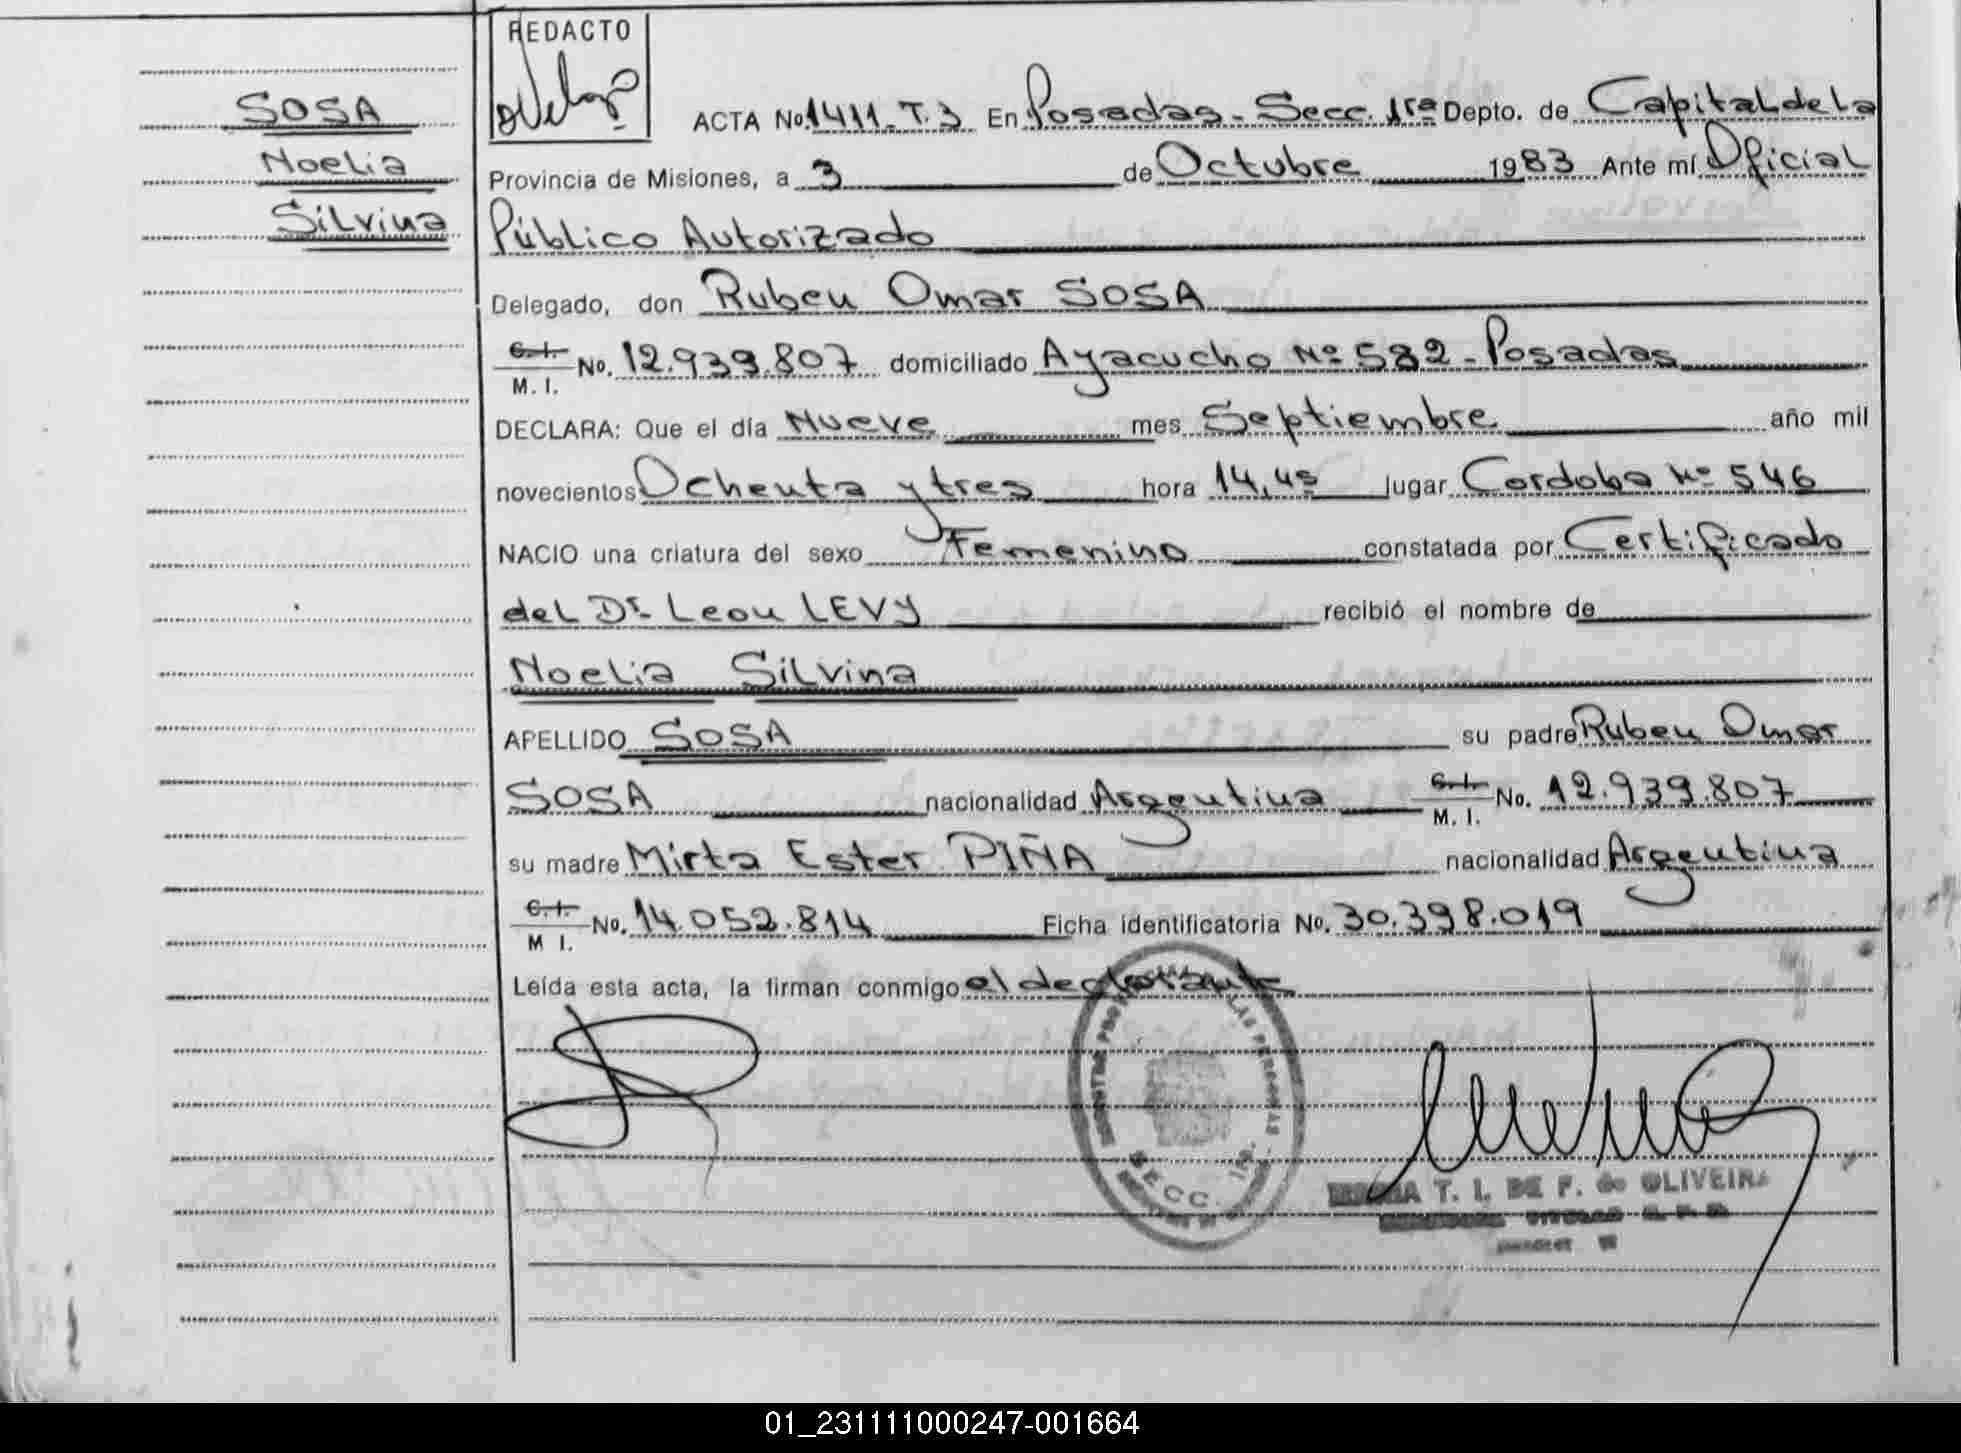 REDACTO
SOSA
Noelia
Silvina
ACTA No. 1411 - T. 3 En Posadas - Secc. 1ra Depto. de Capital de la
Provincia de Misiones, a 3 de Octubre 1983 Ante mí Oficial
Público Autorizado
Delegado, don Ruben Omar SOSA
C.I.
M. I. No. 12.939.807 domiciliado Ayacucho Nº 582 - Posadas
DECLARA: Que el día Nueve mes Septiembre año mil
novecientos Ochenta y tres hora 14,45 lugar Cordoba Nº 546
NACIO una criatura del sexo Femenino constatada por Certificado
del Dr. Leon LEVY recibió el nombre de
Noelia Silvina
APELLIDO SOSA su padre Ruben Omar
SOSA nacionalidad Argentina C.I. M. I. No. 12.939.807
su madre Mirta Ester PIÑA nacionalidad Argentina
C.I.
M I. No. 14.052.814 Ficha identificatoria No. 30.398.019
Leída esta acta, la firman conmigo el declarante
LAS PERSONAS
SECC. 1ra.
T. I. DE F. de OLIVEIRA
01_231111000247-001664